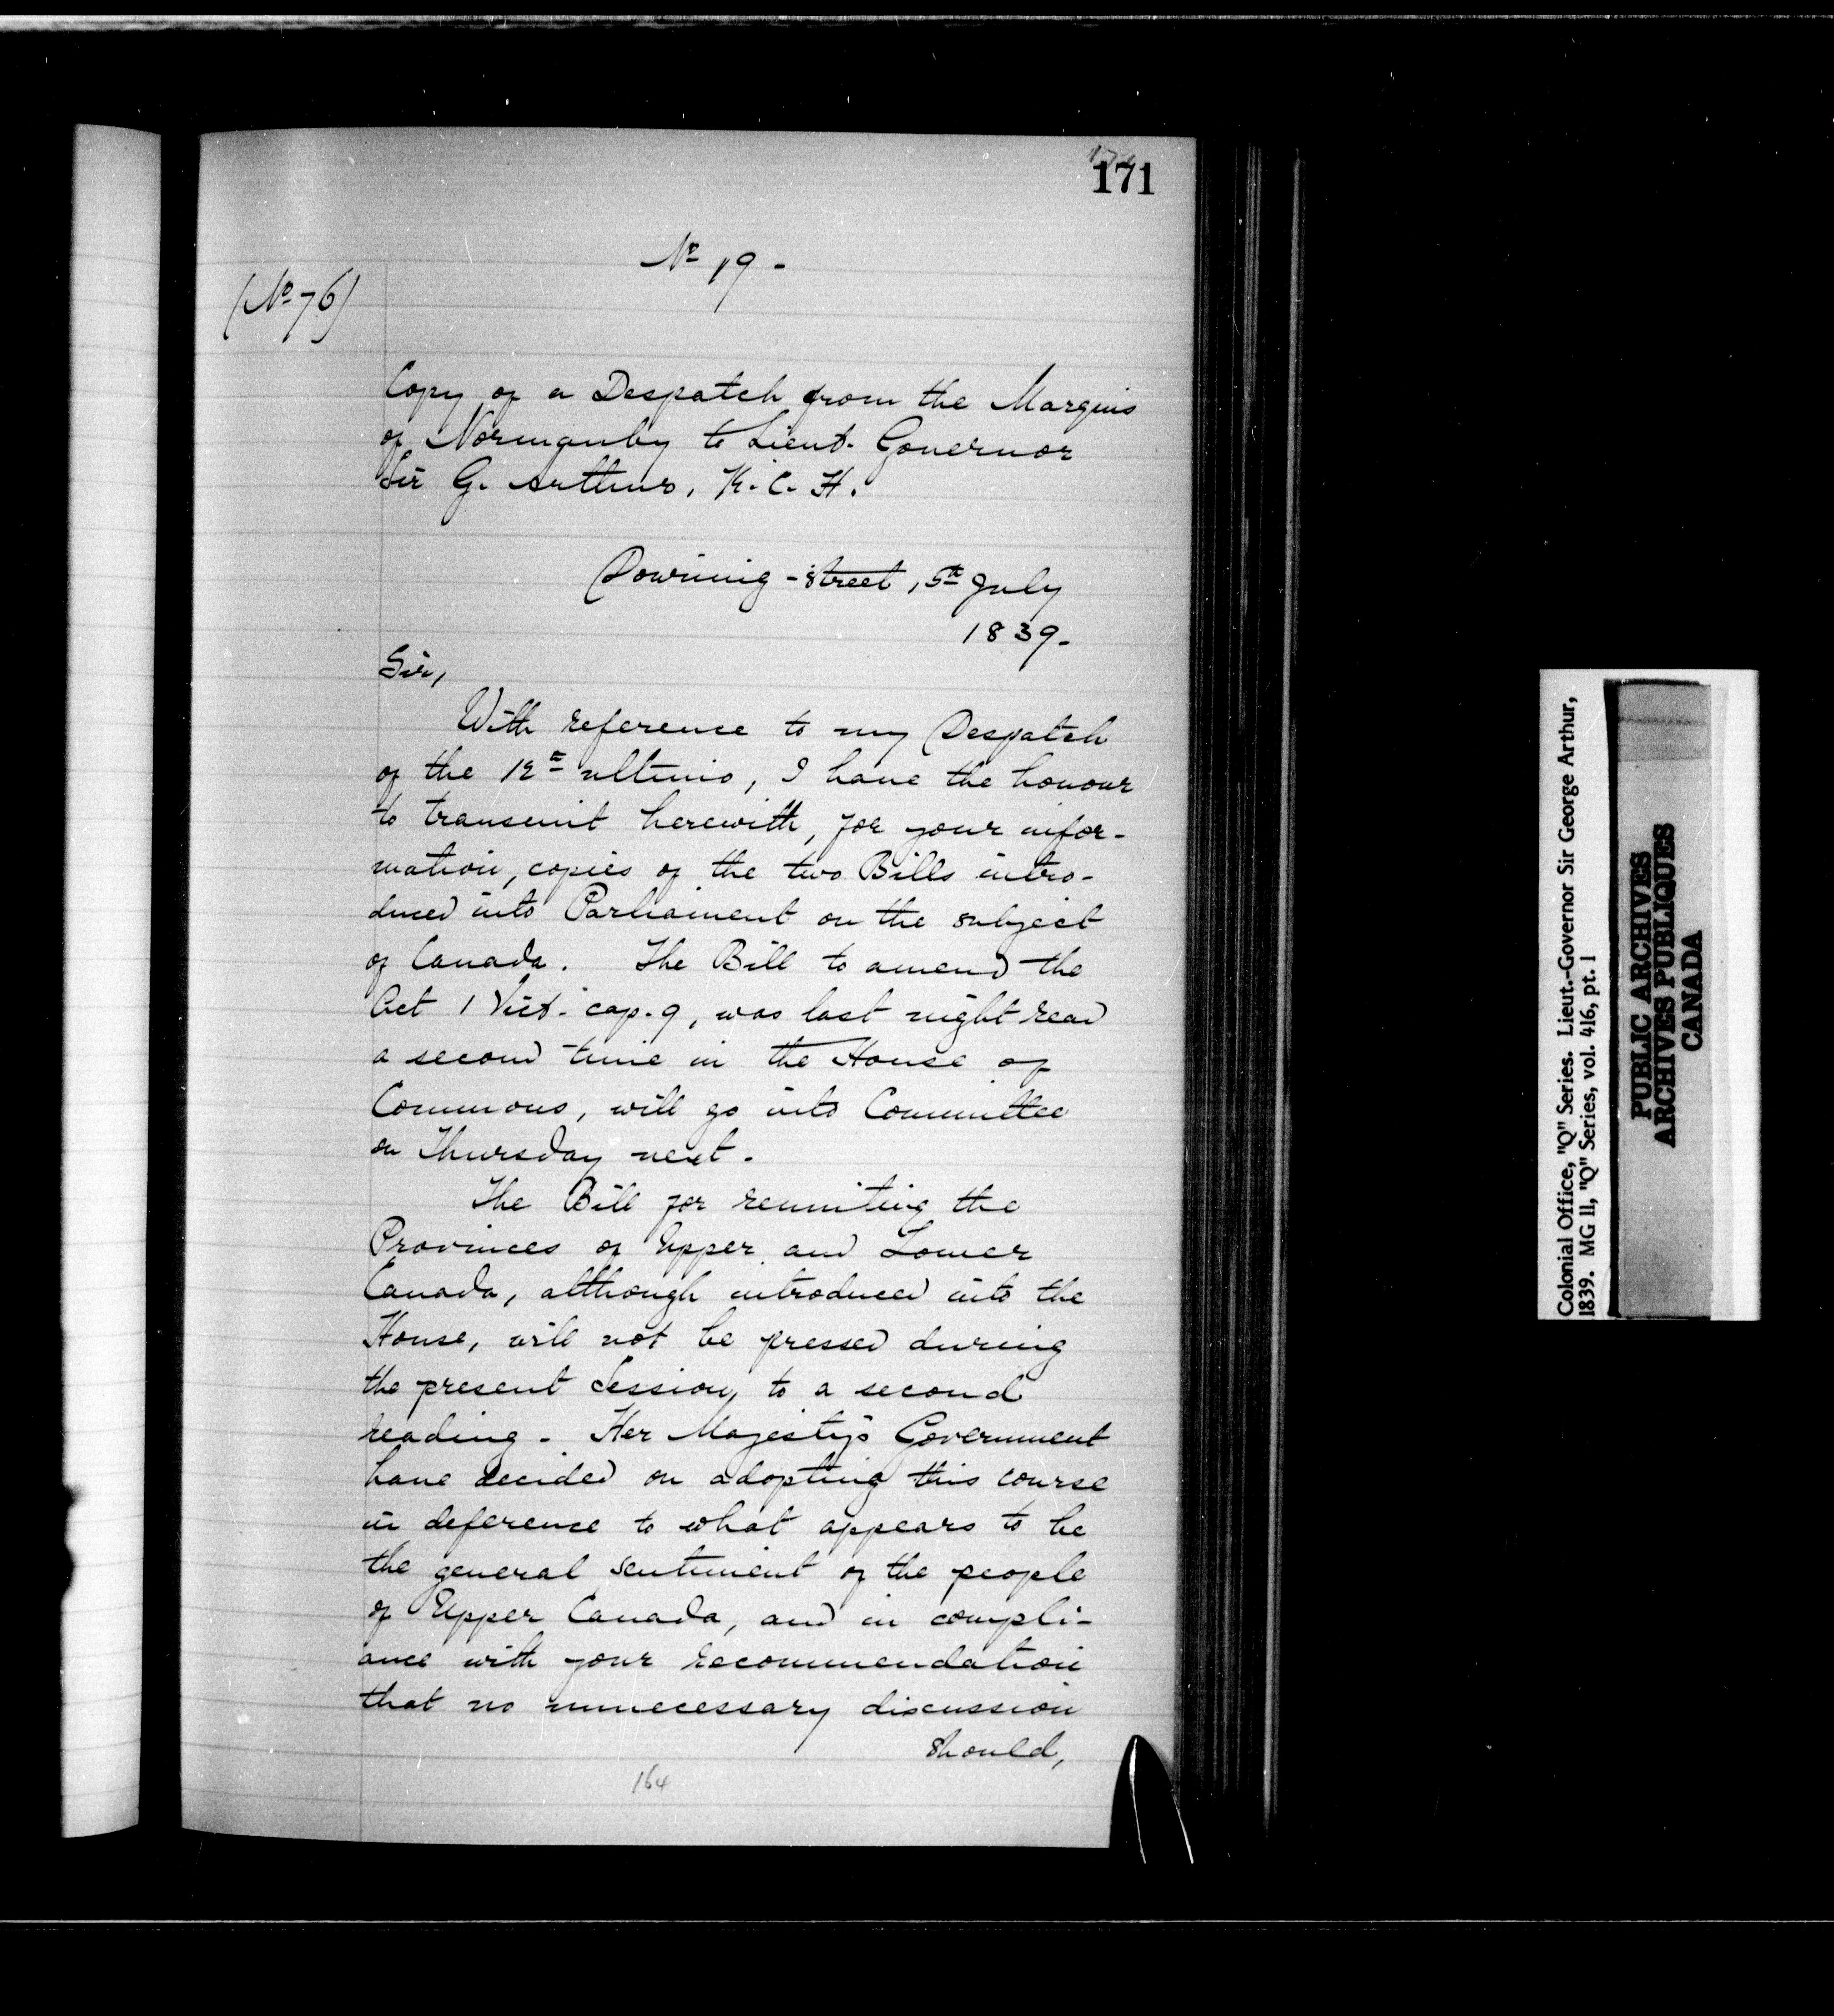 171
No 19 -
(No 76)
Copy of a Despatch from the Marquis
of Normanby to Lieut. Governor
Sir G. Arthur, K. C. H.
Downing - Street, 5th July
1839 -
Sir,
With reference to my Despatch
of the 12th ultimo, I have the honour
to transmit herewith, for your infor-
mation, copies of the two Bills intro-
duced into Parliament on the subject
of Canada. The Bill to amend the
Act 1 Vict. cap. 9, was last night read
a second time in the House of
Commons, will go into Committee
on Thursday next.
The Bill for reuniting the
Provinces of Upper and Lower
Canada, although introduced into the
House, will not be pressed during
the present Session, to a second
reading - Her Majesty's Government
have decided on adopting this course
in deference to what appears to be
the general sentiment of the people
of Upper Canada, and in compli-
ance with your recommendation
that no unnecessary discussion
should,
164
Colonial Office, "Q" Series. Lieut.-Governor Sir George Arthur,
1839. MG 11, "Q" Series, vol. 416, pt. 1
PUBLIC ARCHIVES
ARCHIVES PUBLIQUES
CANADA